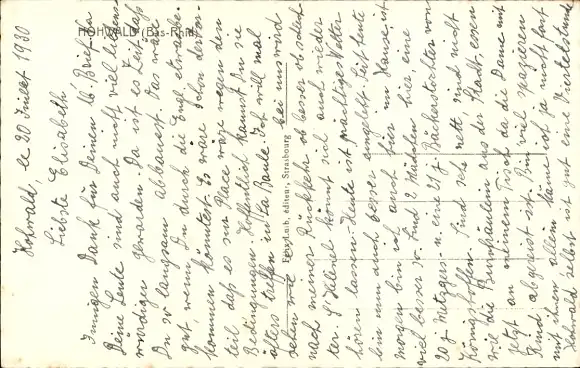 HOHWALD (Bas-Rhin)
Hohwald, le 20 Juillet 1930
Liebste Elisabeth
Innigen Dank für Deinen lb. Brief. Ja
Deine Leute sind auch nicht viel
würdiger geworden. Da ist es Zeit, daß
Du so langsam abbauest. Das wäre
gut, wenn Du durch die
kommen könntest. Es wäre schon
teil daß es zur Place wäre wegen den
Bedingungen. Hoffentlich kannst Du sie
öfters treffen in La Baule. Ich will mal
sehen wie bei uns wird
nach meiner Rückkehr ob besser ob
ter. könnt sich auch wieder
hören lassen. Heute ist prächtiges Wetter
bin nun auch besser eingelebt seit heute
morgen bin ich auch hier im Hause, ist
viel besser so. Sind 2 Mädchen hier, eine
20 j. Metzgers- u. eine 21 j. Bäckerstochter von
Königshoffen. Sind sehr nett und nicht
wie die aus der Stadt, essen
jetzt an meinem Tisch da die Dame mit
Kind abgereist ist. Bin viel spazieren
mit ihnen, allein käme ist ja nicht fort
Hohwald selbst ist gut eine Viertelstunde
Fex, Luib, éditeur, Strasbourg